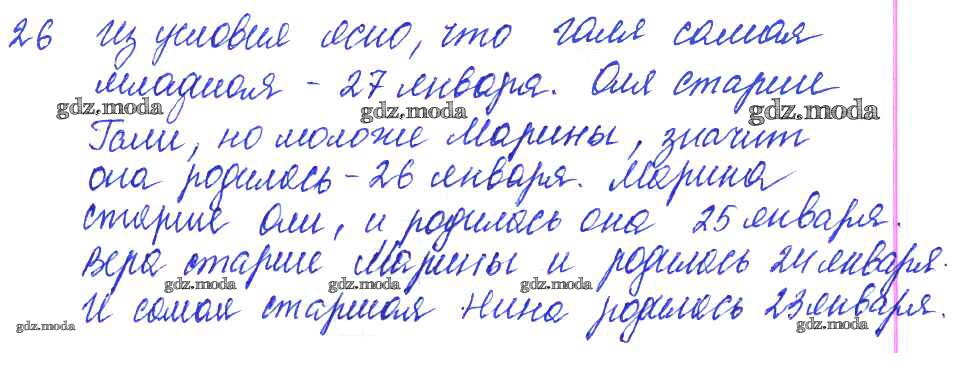 26 Из условия ясно, что Галя самая
младшая - 27 января. Оля старше
gdz.moda gdz.moda gdz.moda
Гали, но моложе Марины, значит
она родилась - 26 января. Марина
старше Оли, и родилась она 25 января.
Вера старше Марины и родилась 24 января.
gdz.moda gdz.moda gdz.moda
И самая старшая Нина родилась 23 января.
gdz.moda gdz.moda